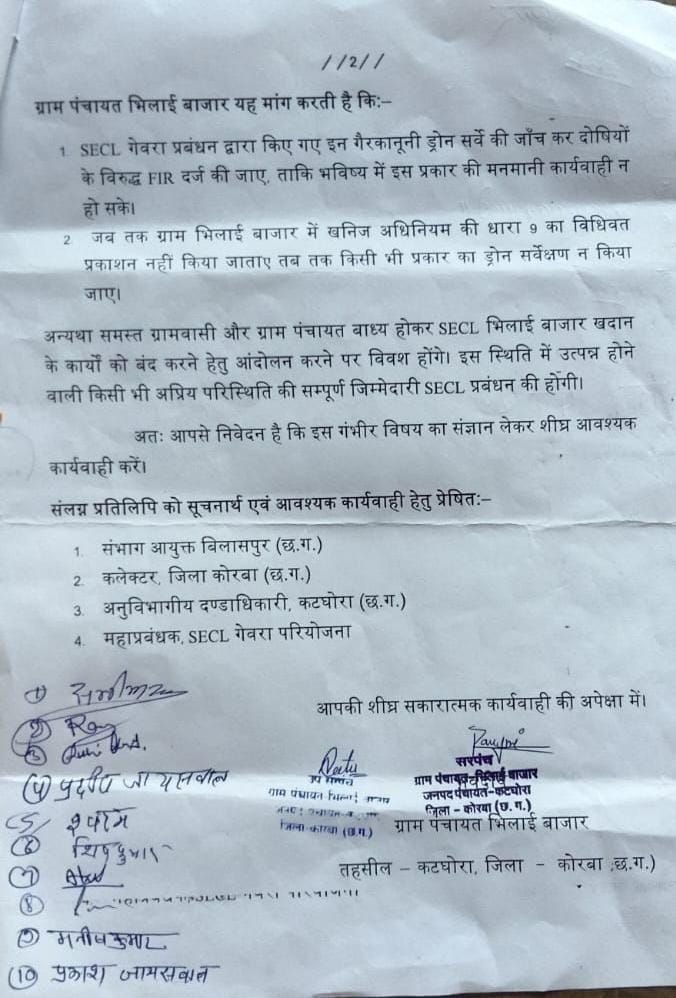 //2//
ग्राम पंचायत भिलाई बाजार यह मांग करती है कि:–
1. SECL गेवरा प्रबंधन द्वारा किए गए इन गैरकानूनी ड्रोन सर्वे की जाँच कर दोषियों
के विरुद्ध FIR दर्ज की जाए, ताकि भविष्य में इस प्रकार की मनमानी कार्यवाही न
हो सके।
2. जब तक ग्राम भिलाई बाजार में खनिज अधिनियम की धारा 9 का विधिवत
प्रकाशन नहीं किया जाताए तब तक किसी भी प्रकार का ड्रोन सर्वेक्षण न किया
जाए।
अन्यथा समस्त ग्रामवासी और ग्राम पंचायत बाध्य होकर SECL भिलाई बाजार खदान
के कार्यों को बंद करने हेतु आंदोलन करने पर विवश होंगे। इस स्थिति में उत्पन्न होने
वाली किसी भी अप्रिय परिस्थिति की सम्पूर्ण जिम्मेदारी SECL प्रबंधन की होगी।
अतः आपसे निवेदन है कि इस गंभीर विषय का संज्ञान लेकर शीघ्र आवश्यक
कार्यवाही करें।
संलग्न प्रतिलिपि को सूचनार्थ एवं आवश्यक कार्यवाही हेतु प्रेषित:–
1. संभाग आयुक्त बिलासपुर (छ.ग.)
2. कलेक्टर, जिला कोरबा (छ.ग.)
3. अनुविभागीय दण्डाधिकारी, कटघोरा (छ.ग.)
4. महाप्रबंधक, SECL गेवरा परियोजना
आपकी शीघ्र सकारात्मक कार्यवाही की अपेक्षा में।
(1)
(2)
(3)
(4) प्रदीप जायसवाल
(5) श्याम
(6) शिवकुमार
(7)
(8)
(9) मनीष कुमार
(10) प्रकाश जायसवाल
उप सरपंच
ग्राम पंचायत भिलाई बाजार
जिला-कोरबा (छ.ग.)
सरपंच
ग्राम पंचायत-भिलाई बाजार
जनपद पंचायत-कटघोरा
जिला – कोरबा (छ.ग.)
ग्राम पंचायत भिलाई बाजार
तहसील – कटघोरा, जिला – कोरबा छ.ग.)